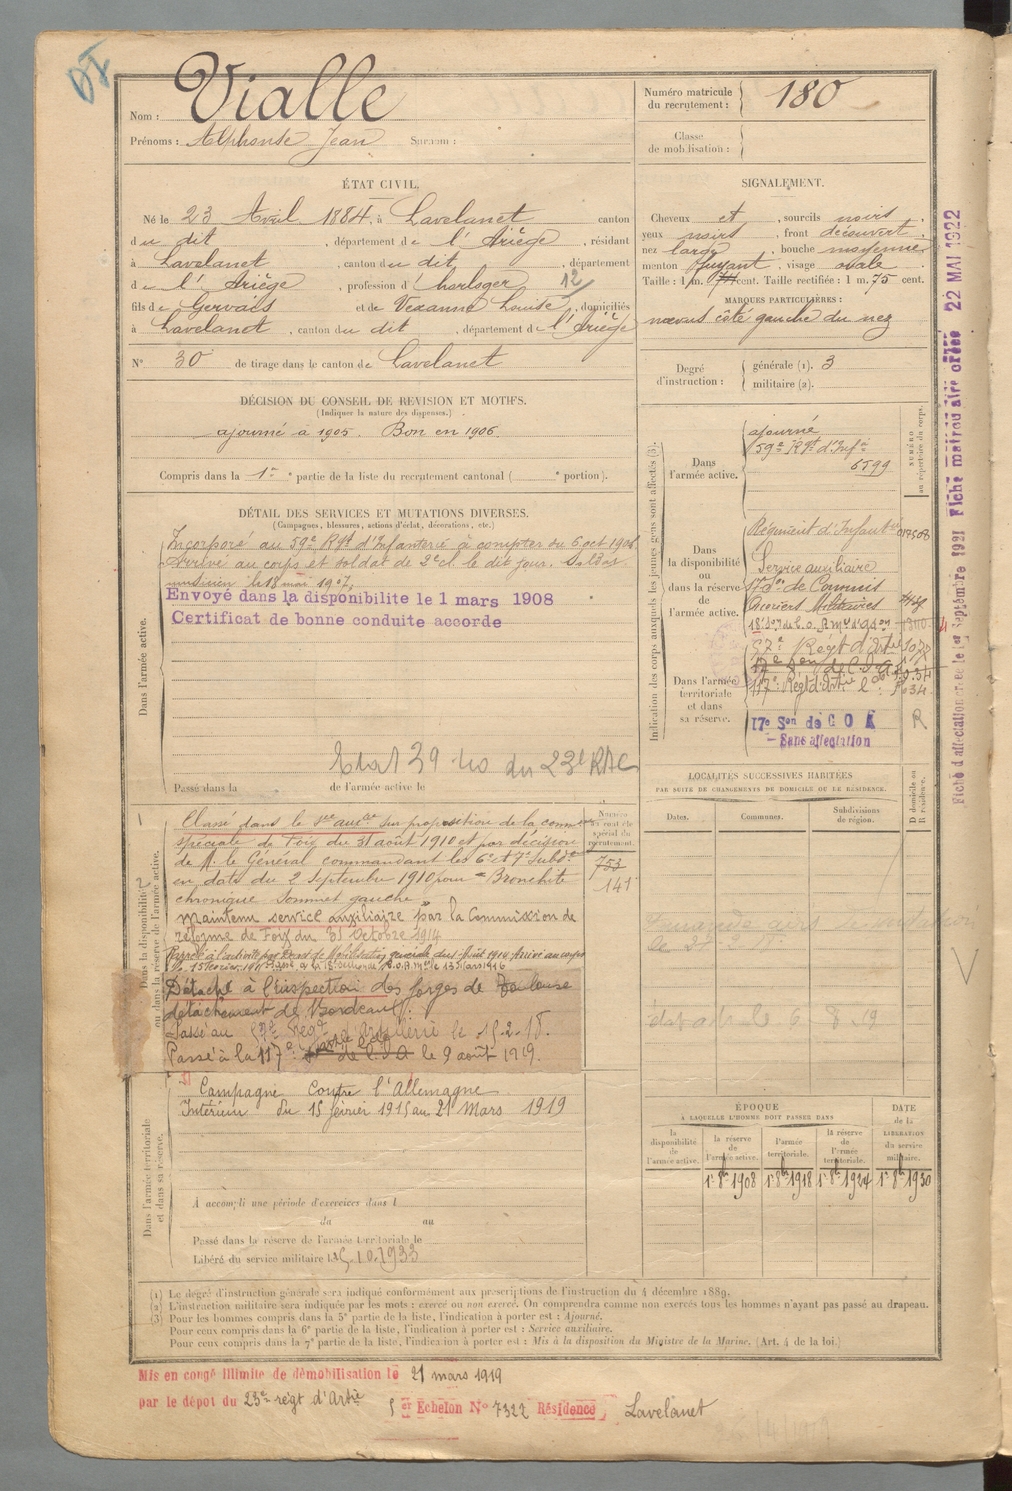 Nom : Vialle
Prénoms : Alphonse Jean Surnom :
Numéro matricule du recrutement : 180
Classe de mobilisation :
ÉTAT CIVIL.
Né le 23 Avril 1884, à Lavelanet canton
du dit, département de l'Ariège, résidant
à Lavelanet, canton du dit, département
de l'Ariège, profession d'horloger 12
fils de Gervais et de Vexanne Louise, domiciliés
à Lavelanet, canton du dit, département de l'Ariège
N° 30 de tirage dans le canton de Lavelanet
SIGNALEMENT.
Cheveux et, sourcils noirs
yeux noirs, front découvert
nez large, bouche moyenne
menton fuyant, visage ovale
Taille : 1 m. cent. Taille rectifiée : 1 m. 75 cent.
MARQUES PARTICULIÈRES :
naevus côté gauche du nez
Degré d'instruction : générale (1). 3
militaire (2).
DÉCISION DU CONSEIL DE REVISION ET MOTIFS.
(Indiquer la nature des dispenses.)
ajourné à 1905. Bon en 1906
Compris dans la 1re partie de la liste du recrutement cantonal ( portion).
DÉTAIL DES SERVICES ET MUTATIONS DIVERSES.
(Campagnes, blessures, actions d'éclat, décorations, etc.)
Dans l'armée active.
Incorporé au 59e Rgt d'Infanterie à compter du 6 oct 1906
Arrivé au corps et soldat de 2e cl. le dit jour. Soldat
musicien le 18 mai 1907.
Envoyé dans la disponibilite le 1 mars 1908
Certificat de bonne conduite accorde
Etat 39 du 23e RAC
Passé dans la de l'armée active le
Indication des corps auxquels les jeunes gens sont affectés (3).
NUMÉRO au répertoire du corps.
Dans l'armée active.
ajourné
59e Rgt d'Infie
6599
Dans la disponibilité ou dans la réserve de l'armée active.
Régiment d'Infanterie 017508
Service auxiliaire
17e Son de Commis
Ouvriers Militaires
Dans l'armée territoriale et dans sa réserve.
57e Régt d'Artie
117e Régt d'Artie
17e Son de COA R
- Sans affectation
Fiche d'affectation créée le 1er Septembre 1921 Fiche matricule créée 22 MAI 1922
Dans la disponibilité ou dans la réserve de l'armée active.
Classé dans le sce auxre sur proposition de la common
spéciale de Foix du 31 août 1910 et par décision
de M. le Général commandant les 6e et 7e Subdns
en date du 2 Septembre 1910 pour "Bronchite
chronique Sommet gauche"
Maintenu service auxiliaire par la Commission de
réforme de Foix du 31 Octobre 1914
Détaché à l'inspection des forges de Toulouse
détachement de Bordeaux.
Passé au 57e Régt d'Artillerie le 15.2.18.
Passé à la 117e de C.O.A le 9 août 1919.
Numéro au contrôle spécial du recrutement.
753
141
LOCALITÉS SUCCESSIVES HABITÉES
PAR SUITE DE CHANGEMENTS DE DOMICILE OU DE RÉSIDENCE.
Dates. Communes. Subdivisions de région. D domicile ou R résidence.
Dans l'armée territoriale et dans sa réserve.
Campagne contre l'Allemagne
Intérieur du 15 février 1915 au 21 Mars 1919
A accompli une période d'exercices dans l
du au
Passé dans la réserve de l'armée territoriale le
Libéré du service militaire le 5.10.1933
ÉPOQUE
A LAQUELLE L'HOMME DOIT PASSER DANS
DATE de la LIBÉRATION du service militaire.
la disponibilité de l'armée active. la réserve de l'armée active. l'armée territoriale. la réserve de l'armée territoriale.
1er 8bre 1908 1er 8bre 1918 1er 8bre 1924 1er 8bre 1930
(1) Le degré d'instruction générale sera indiqué conformément aux prescriptions de l'instruction du 4 décembre 1889.
(2) L'instruction militaire sera indiquée par les mots : exercé ou non exercé. On comprendra comme non exercés tous les hommes n'ayant pas passé au drapeau.
(3) Pour les hommes compris dans la 5e partie de la liste, l'indication à porter est : Ajourné.
Pour ceux compris dans la 6e partie de la liste, l'indication à porter est : Service auxiliaire.
Pour ceux compris dans la 7e partie de la liste, l'indication à porter est : Mis à la disposition du Ministre de la Marine. (Art. 4 de la loi.)
Mis en congé illimité de démobilisation le 21 mars 1919
par le dépot du 23e régt d'Artie
Echelon N° 7322 Résidence Lavelanet